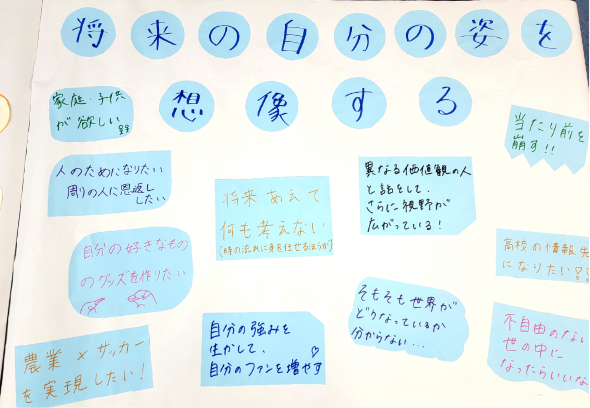 将来の自分の姿を
想像する
家庭・子供
が欲しい
当たり前を
崩す!!
人のためになりたい
周りの人に恩返し
したい
将来 あえて
何も考えない
(時の流れに身を任せるほうが)
異なる価値観の人
と話をして、
さらに視野が
広がっている!
自分の好きなもの
のグッズを作りたい
高校の情報
になりたい
農業×サッカー
を実現したい!
自分の強みを
生かして、
自分のファンを増やす
そもそも世界が
どうなっているか
分からない...
不自由のない
世の中に
なったらいいな